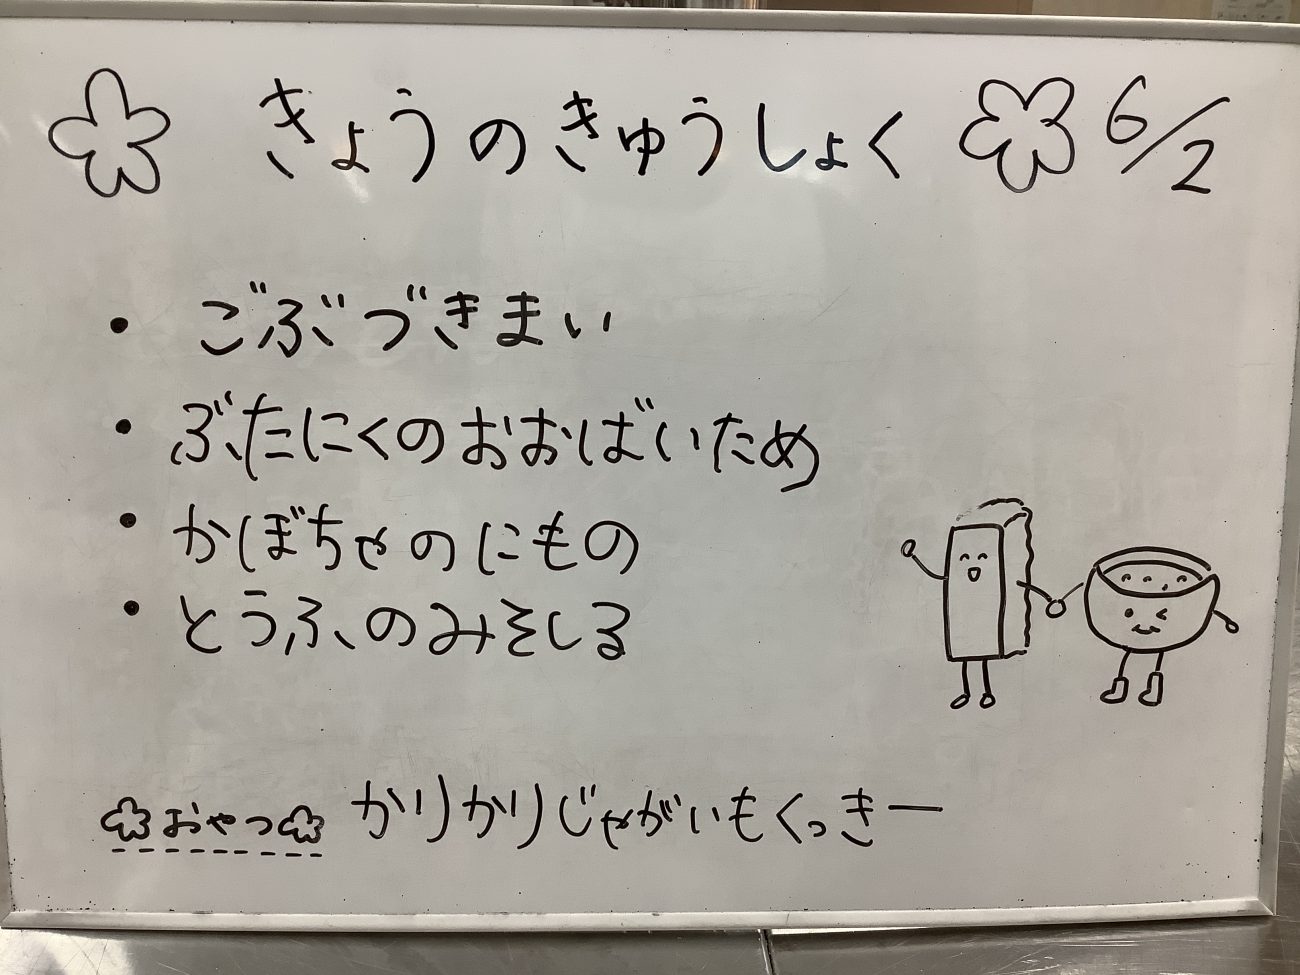 きょうのきゅうしょく 6/2
・ごぶづきまい
・ぶたにくのおおばいため
・かぼちゃのにもの
・とうふのみそしる
おやつ かりかりじゃがいもくっきー